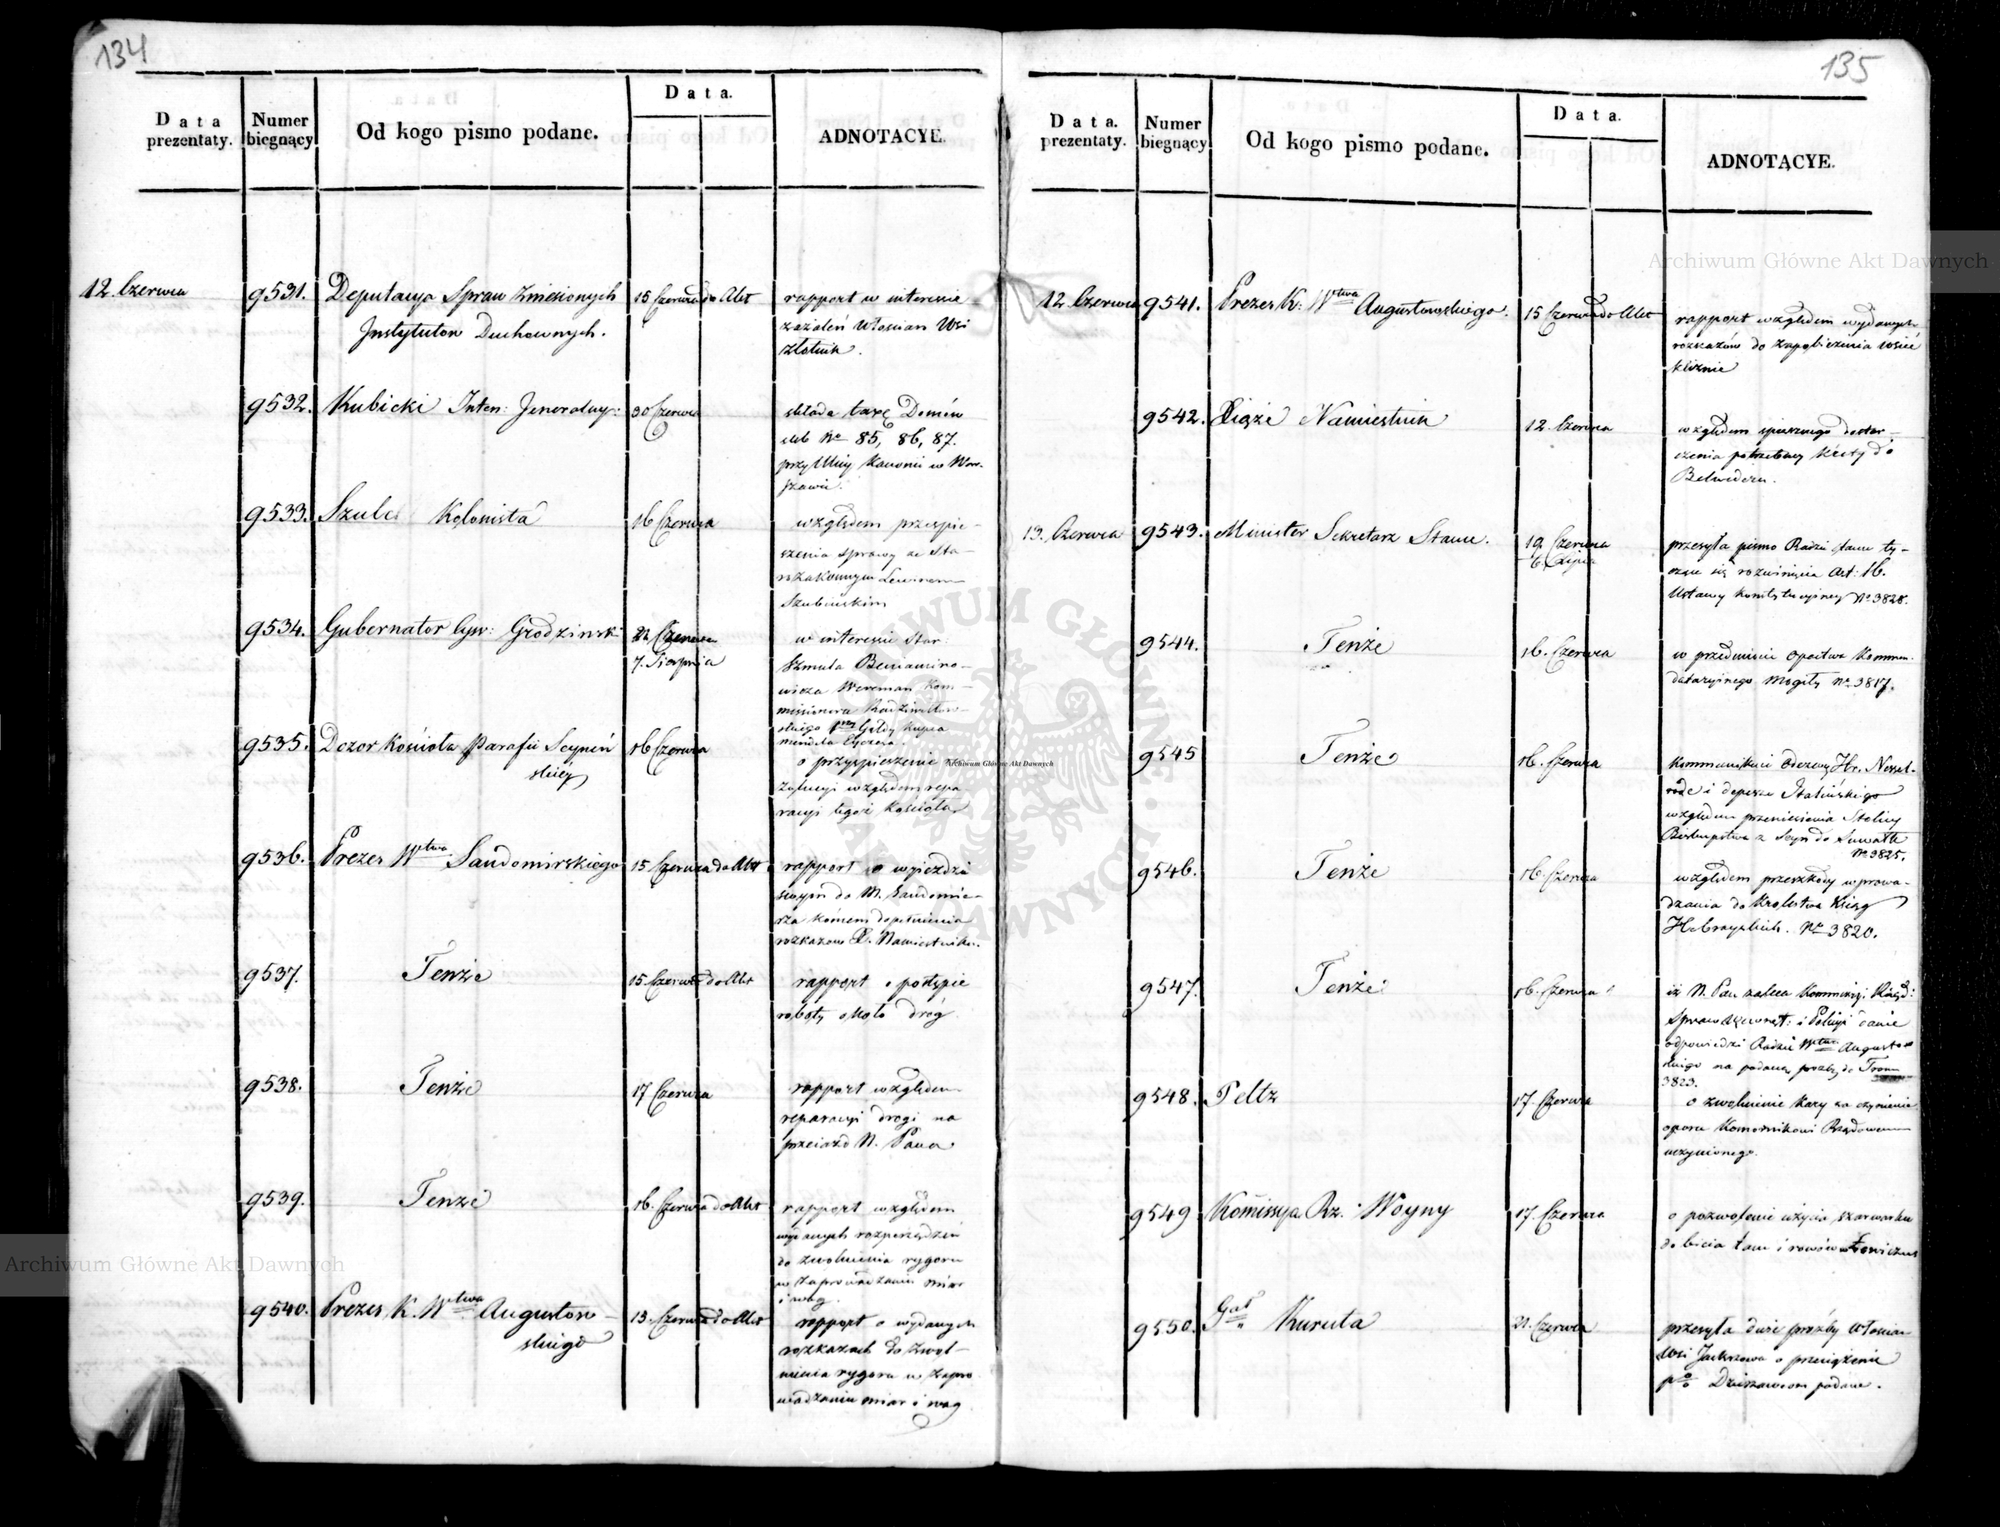 134
Data prezentaty.
Numer biegnący
Od kogo pismo podane.
Data.
ADNOTACYE.
12. Czerwca
9531.
Deputacya Spraw Zniesionych
Instytutow Duchownych.
15 Czerwca do Akt
rapport w interessie
zażaleń Włościan Wsi
Złotnik.
9532.
Kubicki Inten: Jeneralny:
30 Czerwca
składa taxę Domów
sub No 85, 86, 87.
przy Ulicy Kanonii w War-
szawie.
9533.
Szulc Kolonista
16 Czerwca
względem przespie-
szenia sprawy ze Sta-
rozakonnym
Szubińskim
9534.
Gubernator Cyw: Grodzinski
22 Czerwca
7. Sierpnia
w interessie Star:
Szmula Beniamino-
wicza
missionera
kupca
9535.
Dozor Kościoła Parafii Seyneń
skiéy
16 Czerwca
o przyspieszenie
względem repa
racyi tegoż Kościoła
9536.
Prezes Wctwa Sandomirskiego
15 Czerwca do Akt
rapport o wyjezdzie
swym do M. Sandomie-
rza końcem dopełnienia
rozkazow X. Namiestnika.
9537.
Tenże
15. Czerwca do Akt
rapport o postępie
roboty około dróg
9538.
Tenże
17 Czerwca
rapport względem
reparacyi drogi na
przeiazd N. Pana
9539.
Tenże
16. Czerwca do Akt
rapport względem
wydanych rozporządzeń
do zwolnienia rygoru
w zaprowadzaniu miar
i wag.
9540.
Prezes K. Wctwa Augustow-
skiego
13. Czerwca do Akt
rapport o wydanych
rozkazach do zwol-
nienia rygoru w zapro
wadzaniu miar i wag
135
Data. prezentaty.
Numer biegnący
Od kogo pismo podane.
Data.
ADNOTACYE.
12 Czerwca
9541.
Prezes K: Wctwa Augustowskiego.
15 Czerwca do Akt
rapport względem wydanych
rozkazów do zapobieżenia wście
kliznie
9542.
Xiąże Namiestnik
12 Czerwca
względem spiesznego dostar-
czenia potrzebney do
Belwederu.
13. Czerwca
9543.
Minister Sekretarz Stanu.
19 Czerwca
6. Lipca
przesyła pismo Radzie Stanu ty-
czące się rozwinięcia Art: 16.
Ustawy Konstytucyiney No 3828.
9544.
Tenże
16. Czerwca
w przedmiocie Opactwa Kommen-
dataryinego Mogiły No 3817.
9545
Tenże
16. Czerwca
kommunikuie Odezwę Hr. Nessel-
rode i depesze Italińskiego
względem przeniesienia Stolicy
Biskupstwa z Seyn do Suwałk
No 3825.
9546.
Tenże
16. Czerwca
względem przeszkody wprowa-
dzania do Krolestwa Ksiąg
Hebrayskich. No 3820.
9547.
Tenże
16. Czerwca
iż N. Pan zaleca Kommissyi Rząd:
Spraw Wewnęt: i Policyi danie
odpowiedzi Radzie Wctwa Augustow
skiego na podaną prozbę do Tronu
3823.
9548.
Peltz
17. Czerwca
o zwolnienie kary za czynienie
oporu Komornikowi Rządowemu
uczynionego.
9549
Kom̄issya Rz: Woyny
17. Czerwca
o pozwolenie użycia szarwarku
do bicia tam i rowów w Łowiczu
9550.
Gał Kuruta
21. Czerwca
przesyła dwie prozby Włościan
Wsi o przeciążenie
pko Dzierzawcom podane.
Archiwum Główne Akt Dawnych
Archiwum Główne Akt Dawnych
Archiwum Główne Akt Dawnych
ARCHIWUM GŁÓWNE AKT DAWNYCH